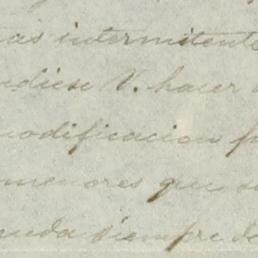 as intermitente
udiese V. hacer
modificacion p
menores que s
ueda siempre de